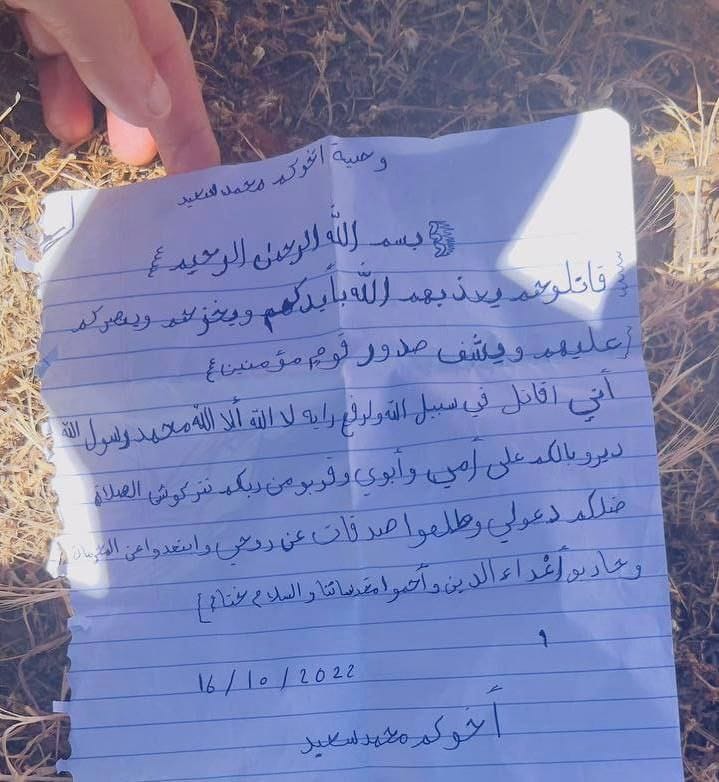 وصية أخوكم محمد سعيد
{بسم الله الرحمن الرحيم}
{قاتلوهم يعذبهم الله بأيدكم ويخزهم وينصركم
عليهم ويشف صدور قوم مؤمنين}
أني اقاتل في سبيل الله ولرفع رايه لا الله ألا الله محمد رسول الله
ديرو بالكم على أمي وأبوي وقربو من ربكم تتركوش الصلاة
ضلكم دعولي وطلعوا صدقات عن روحي وابتعدوا عن
وحاربو أعداء الدين وأحموا مقدساتنا والسلام ختاما}
16/10/2022
أخوكم محمد سعيد